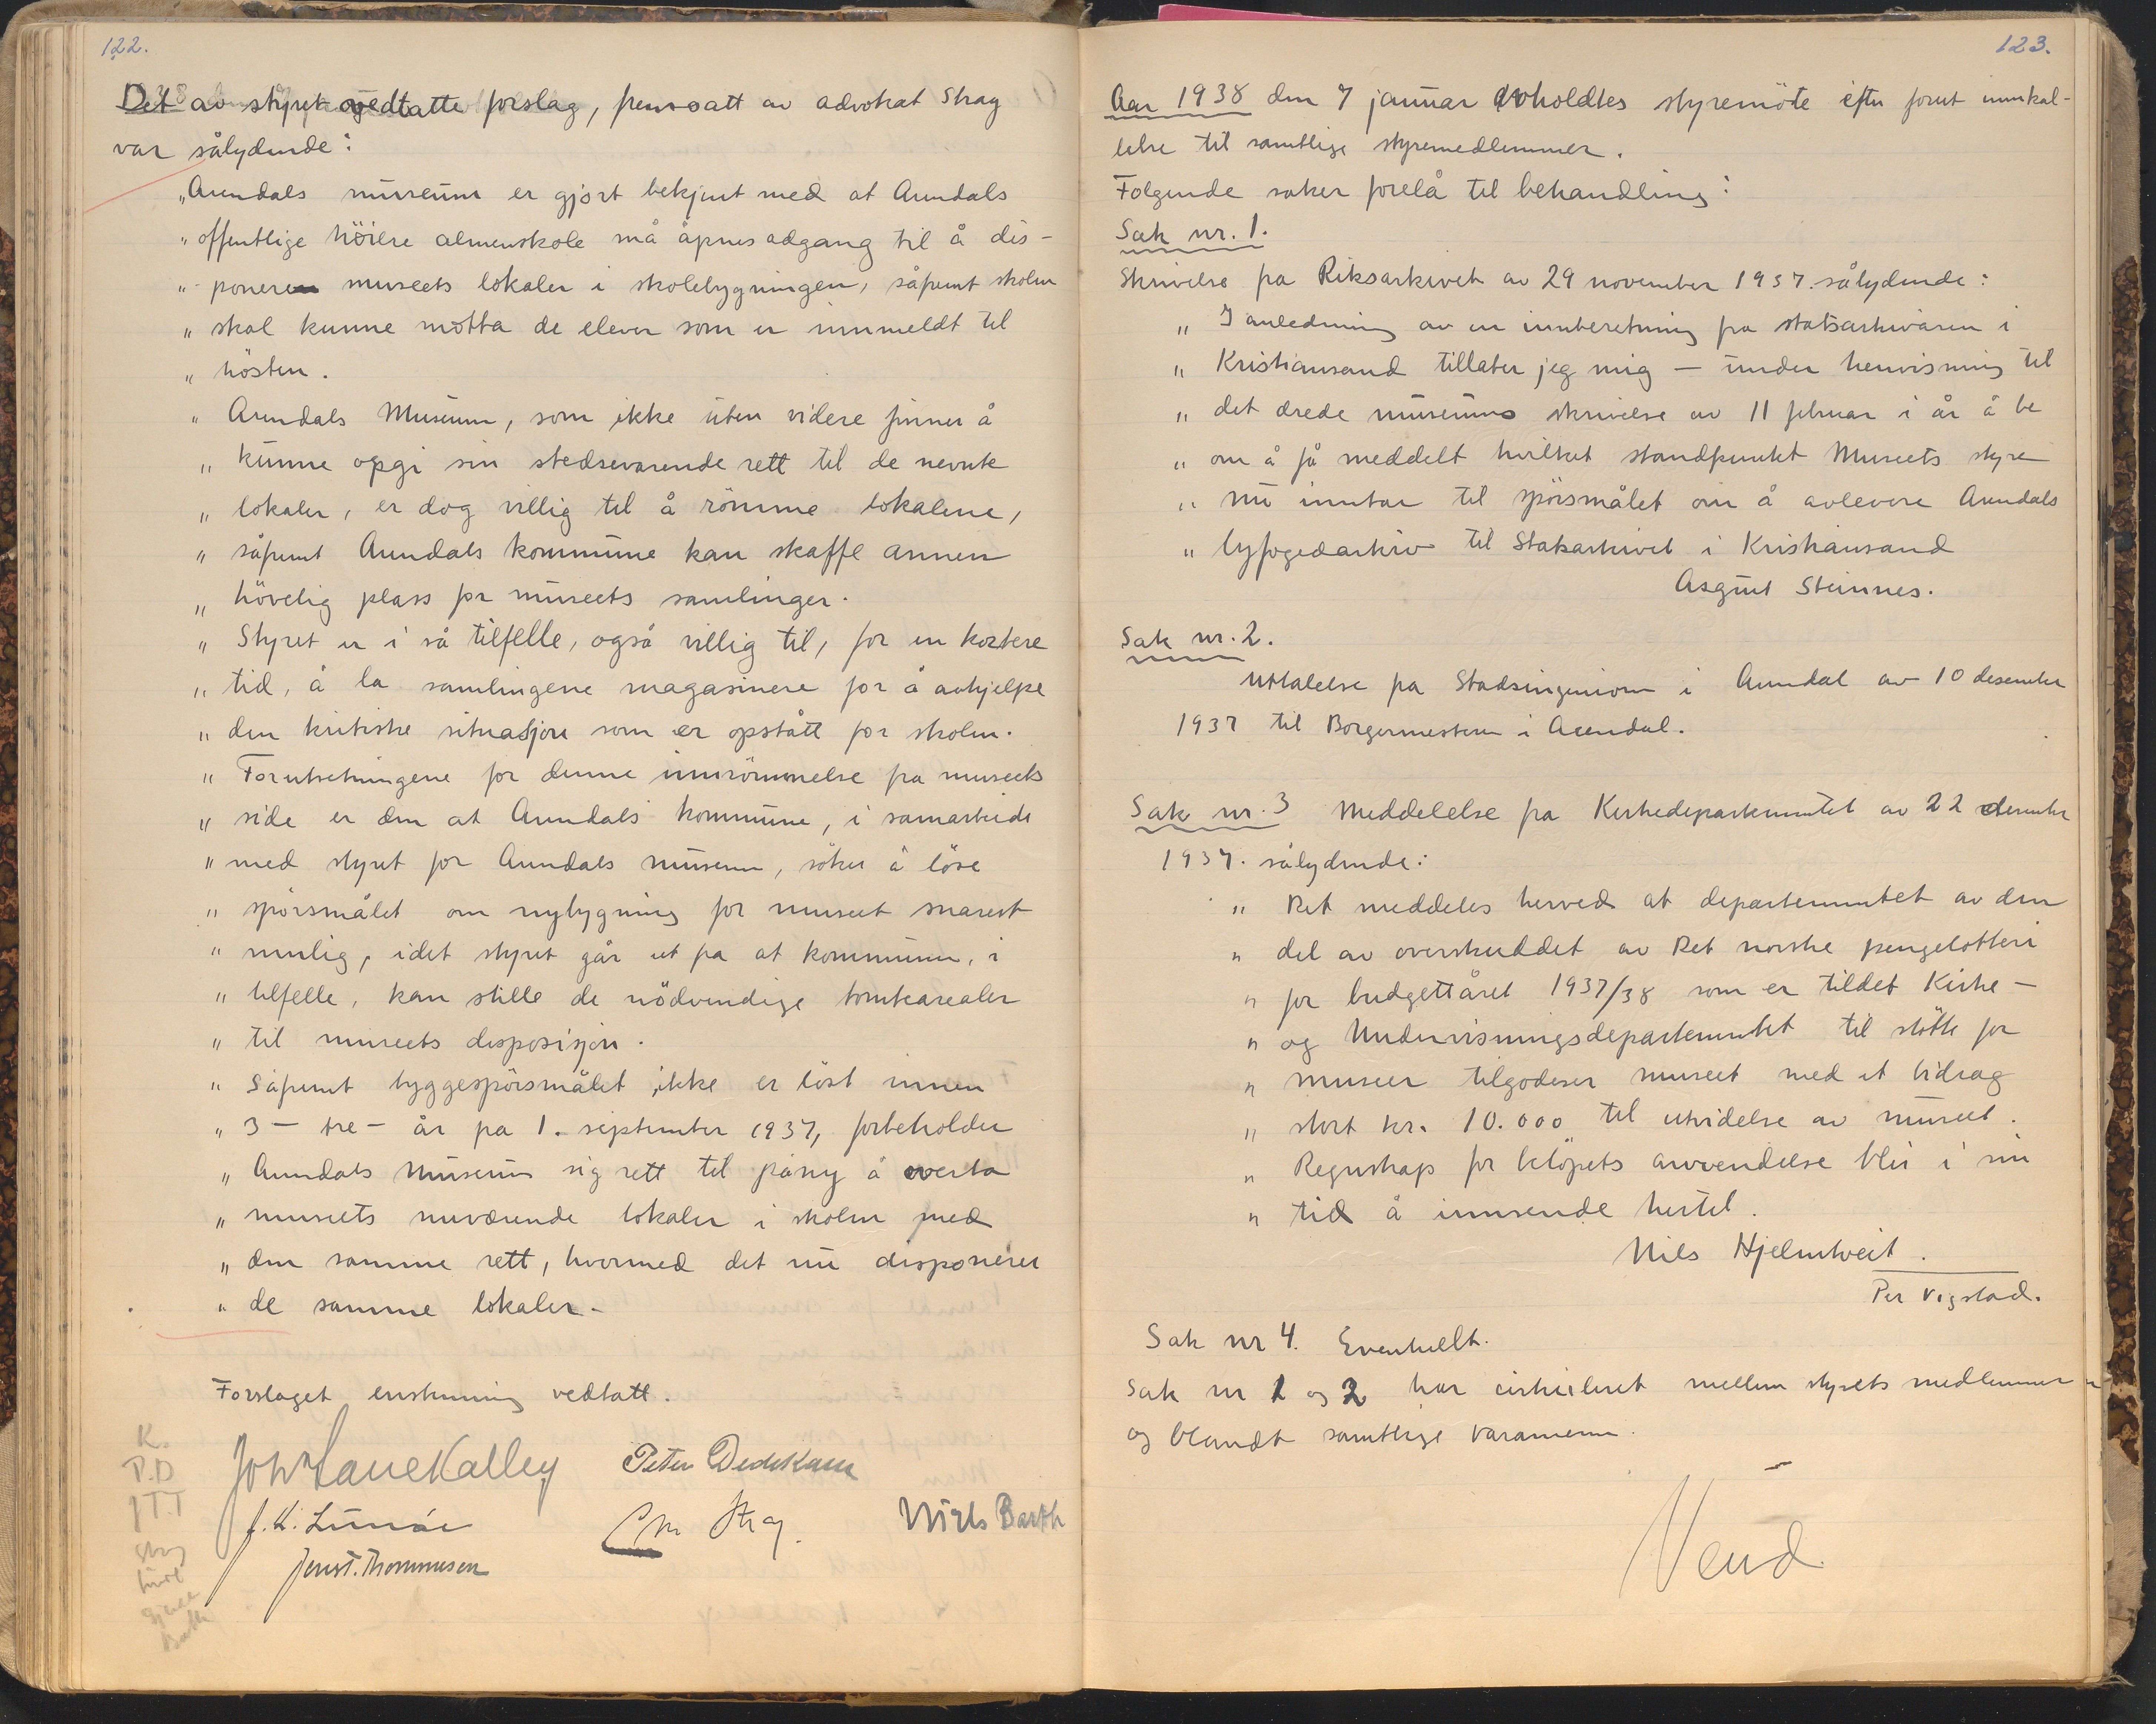 122.
Det av styret vedtatte forslag, fremsatt av advokat Stray
var sålydende:
„Arendals museum er gjort bekjent med at Arendals
„ offentlige höiere almenskole må åpnes adgang til å dis-
„ ponere museets lokaler i skolebygningen, såfremt skolen
„ skal kunne motta de elever som er innmeldt til
„ hösten.
„ Arendals Museum, som ikke uten videre finner å
„ kunne opgi sin stedsevarende rett til de nevnte
„ lokaler, er dog villig til å römme lokalene,
„ såfremt Arendals kommune kan skaffe annen
„ hövelig plass for museets samlinger.
„ Styret er i så tilfelle, også villig til, for en kortere
„ tid, å la samlingene magasinere for å avhjelpe
„ den kritiske situasjon som er opstått for skolen.
„ Forutsetningene for denne innrömmelse fra museets
„ side er den at Arendals kommune, i samarbeide
„ med styret for Arendals museum, söker å löse
„ spörsmålet om nybygning for museet snarest
„ mulig, idet styret går ut fra at kommunen, i
„ tilfelle, kan stille de nödvendige tomtearealer
„ til museets disposisjon.
„ Såfremt byggespörsmålet ikke er löst innen
„ 3 - tre - år fra 1. september 1937, forbeholder
„ Arendals Museum sig rett til påny å overta
„ museets nuværende lokaler i skolen med
„ den samme rett, hvormed det nu disponerer
„ de samme lokaler.
Forslaget enstemmig vedtatt.
K.
P.D
JTT
Stray
Joh Lauekalley Peter Dedekam
J. K. Lunöe Chr Stray. Niels Barth
Jens T. Thommesen
123.
Aar 1938 den 7 januar avholdtes styremöte efter forut innkal-
lelse til samtlige styremedlemmer.
Folgende saker forelå til behandling:
Sak nr. 1.
Skrivelse fra Riksarkivet av 29 november 1937. sålydende:
„ I anledning av en innberetning fra statsarkivaren i
„ Kristiansand tillater jeg mig - under henvisning til
„ det ærede museums skrivelse av 11 februar i år å be
„ om å få meddelt hvilket standpunkt Museets styre
„ nu inntar til spörsmålet om å avlevere Arendals
„ byfogedarkiv til Statsarkivet i Kristiansand
Asgaut Steinnes.
Sak nr. 2.
Uttalelse fra Stadsingeniören i Arendal av 10 desember
1937 til Borgermesteren i Arendal.
Sak nr. 3 Meddelelse fra Kirkedepartementet av 22 desember
1937. sålydende:
„ Det meddeles herved at departementet av den
„ del av overskuddet av Det norske pengelotteri
„ for budgettåret 1937/38 som er tildelt Kirke -
„ og Undervisningsdepartementet til stötte for
„ museer tilgodeser museet med et bidrag
„ stort kr. 10.000 til utvidelse av museet.
„ Regnskap for belöpets anvendelse blir i sin
„ tid å innsende hertil.
Nils Hjelmtveit.
Per Vigstad.
Sak nr 4. Eventuelt.
Sak nr 1 og 2 har cirkuleret mellem styrets medlemmer
og blandt samtlige varamenn.
Vend